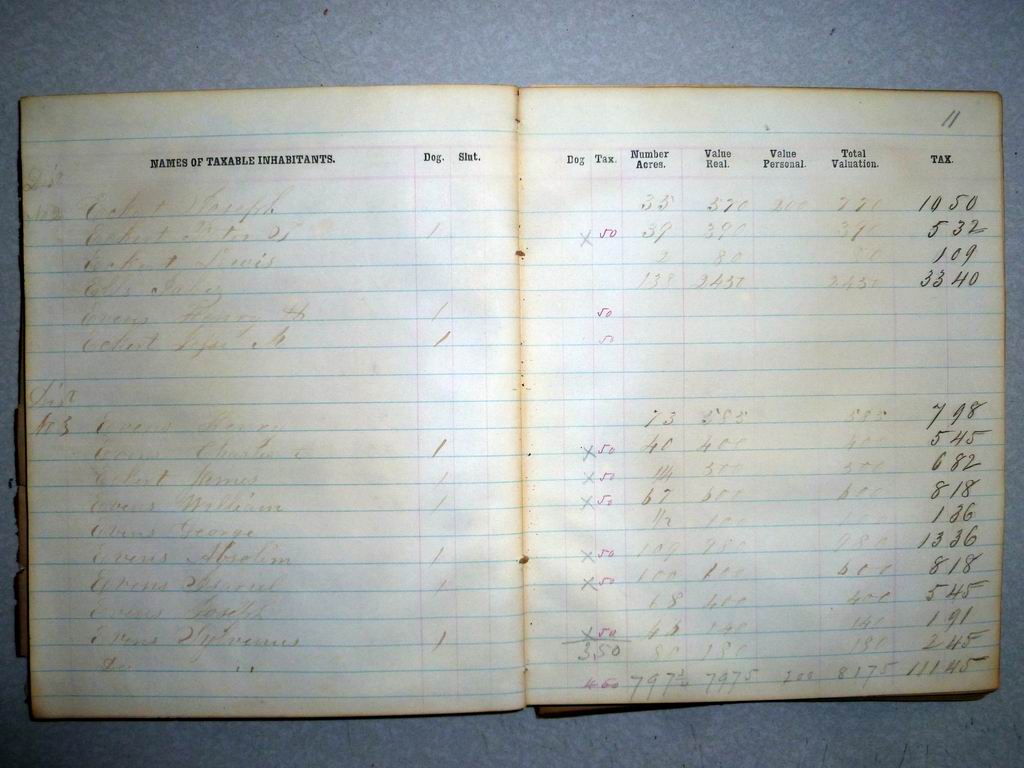 11
NAMES OF TAXABLE INHABITANTS. Dog. Slut. Dog Tax. Number Acres. Value Real. Value Personal. Total Valuation. TAX.
Dis
No 2 Eckert Joseph 35 570 200 770 10 50
Eckert Peter 1 x 50 39 390 390 5 32
Eckert Lewis 2 80 80 1 09
138 2450 2450 33 40
Evens Henry 1 50
Eckert M 1 50
Dis
No 3 Evens Henry 73 585 585 7 98
Evens Charles 1 x 50 40 400 400 5 45
Eckert James 1 x 50 1/4 500 500 6 82
Evens William 1 x 50 67 600 600 8 18
Evens George 1/2 100 100 1 36
Evens Absolim 1 x 50 109 980 980 13 36
Evens 1 x 50 100 600 600 8 18
Evens Joseph 68 400 400 5 45
Evens Sylvenus 1 x 50 46 140 140 1 91
Do " 3,50 80 180 180 2 45
4 50 797 7975 200 8175 111 45